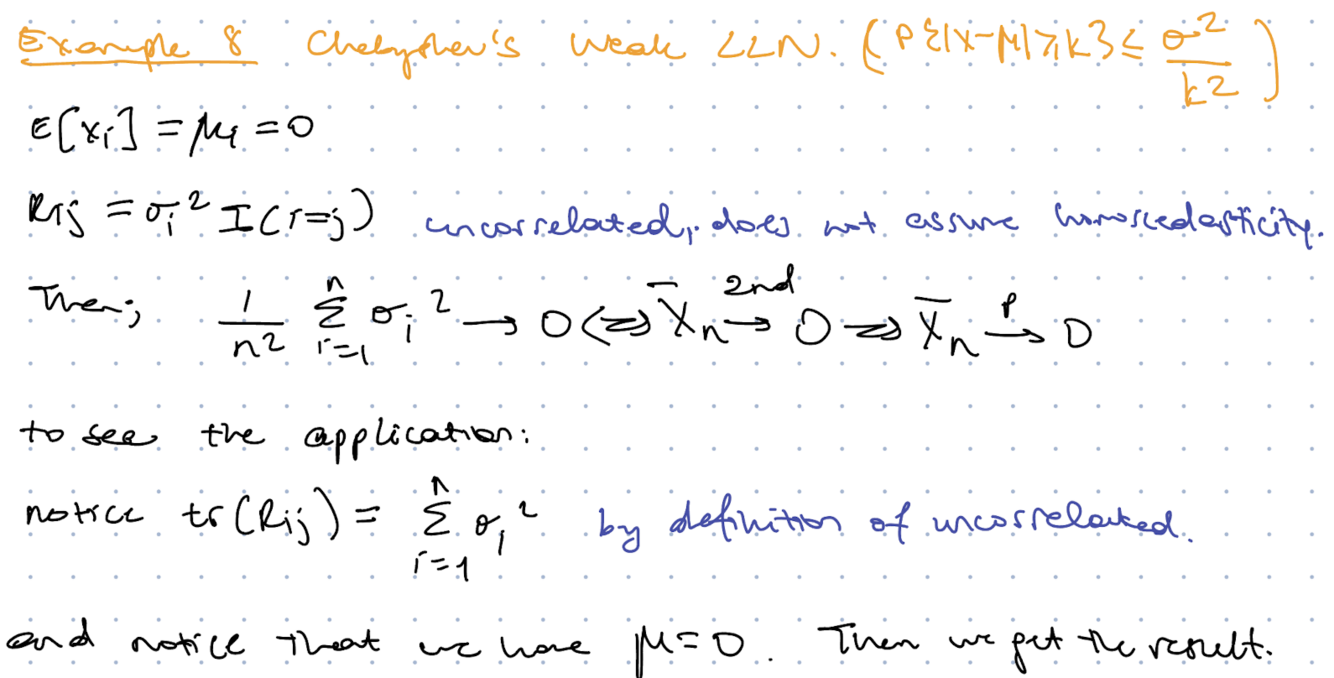 Example 8 Chebyshev's Weak LLN. (P{|X-μ|≥k}≤ σ²/k²)
E[xᵢ] = μᵢ = 0
Rᵢⱼ = σᵢ² I(i=j) uncorrelated, does not assume homoscedasticity.
Then; 1/n² Σᵢ₌₁ⁿ σᵢ² → 0 ⇔ X̄ₙ →(2nd) 0 ⇒ X̄ₙ →(p) 0
to see the application:
notice tr(Rᵢⱼ) = Σᵢ₌₁ⁿ σᵢ² by definition of uncorrelated.
and notice that we have μ=0. Then we get the result.